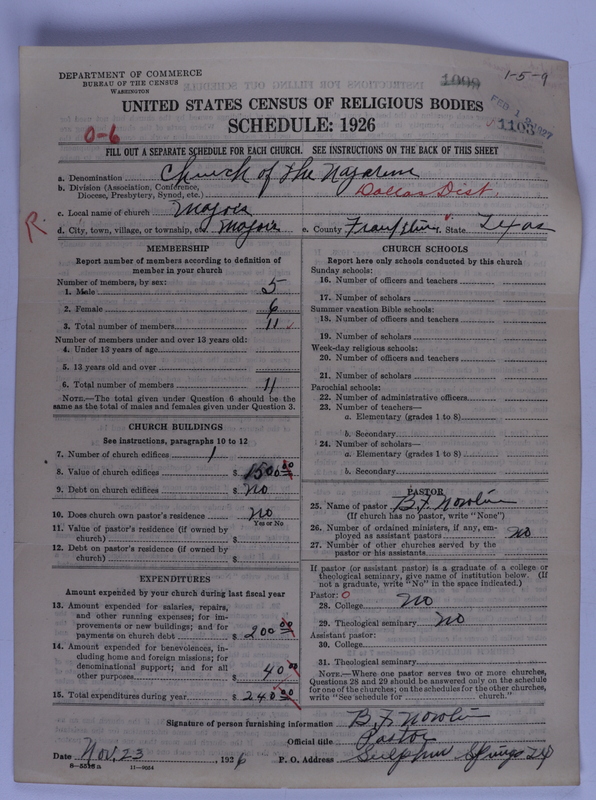 DEPARTMENT OF COMMERCE
BUREAU OF THE CENSUS
WASHINGTON
1099
1-5-9
FEB 12 1927
1103
UNITED STATES CENSUS OF RELIGIOUS BODIES
SCHEDULE: 1926
0-6
FILL OUT A SEPARATE SCHEDULE FOR EACH CHURCH. SEE INSTRUCTIONS ON THE BACK OF THIS SHEET
a. Denomination Church of the Nazarene
b. Division (Association, Conference, Diocese, Presbytery, Synod, etc.) Dallas Dist.
c. Local name of church Majors
R. d. City, town, village, or township, etc. Majors e. County Franklin f. State Texas
MEMBERSHIP
Report number of members according to definition of
member in your church
Number of members, by sex:
1. Male 5
2. Female 6
3. Total number of members 11
Number of members under and over 13 years old:
4. Under 13 years of age
5. 13 years old and over
6. Total number of members 11
NOTE.—The total given under Question 6 should be the
same as the total of males and females given under Question 3.
CHURCH BUILDINGS
See instructions, paragraphs 10 to 12
7. Number of church edifices 1
8. Value of church edifices $ 1500 00
9. Debt on church edifices $ No
10. Does church own pastor's residence? No
Yes or No
11. Value of pastor's residence (if owned by
church) $
12. Debt on pastor's residence (if owned by
church) $
EXPENDITURES
Amount expended by your church during last fiscal year
13. Amount expended for salaries, repairs,
and other running expenses; for im-
provements or new buildings; and for
payments on church debt $ 200 00
14. Amount expended for benevolences, in-
cluding home and foreign missions; for
denominational support; and for all
other purposes $ 40 00
15. Total expenditures during year $ 240 00
CHURCH SCHOOLS
Report here only schools conducted by this church
Sunday schools:
16. Number of officers and teachers
17. Number of scholars
Summer vacation Bible schools:
18. Number of officers and teachers
19. Number of scholars
Week-day religious schools:
20. Number of officers and teachers
21. Number of scholars
Parochial schools:
22. Number of administrative officers
23. Number of teachers—
a. Elementary (grades 1 to 8)
b. Secondary
24. Number of scholars—
a. Elementary (grades 1 to 8)
b. Secondary
PASTOR
25. Name of pastor B.F. Nowlin
(If church has no pastor, write "None")
26. Number of ordained ministers, if any, em-
ployed as assistant pastors No
27. Number of other churches served by the
pastor or his assistants
If pastor (or assistant pastor) is a graduate of a college or
theological seminary, give name of institution below. (If
not a graduate, write "No" in the space indicated.)
Pastor: 0
28. College No
29. Theological seminary No
Assistant pastor:
30. College
31. Theological seminary
NOTE.—Where one pastor serves two or more churches,
Questions 28 and 29 should be answered only on the schedule
for one of the churches; on the schedules for the other churches,
write "See schedule for church."
Signature of person furnishing information B.F. Nowlin
Official title Pastor
Date Nov. 23, 1926 P. O. Address Sulphur Springs Tex
11—9054